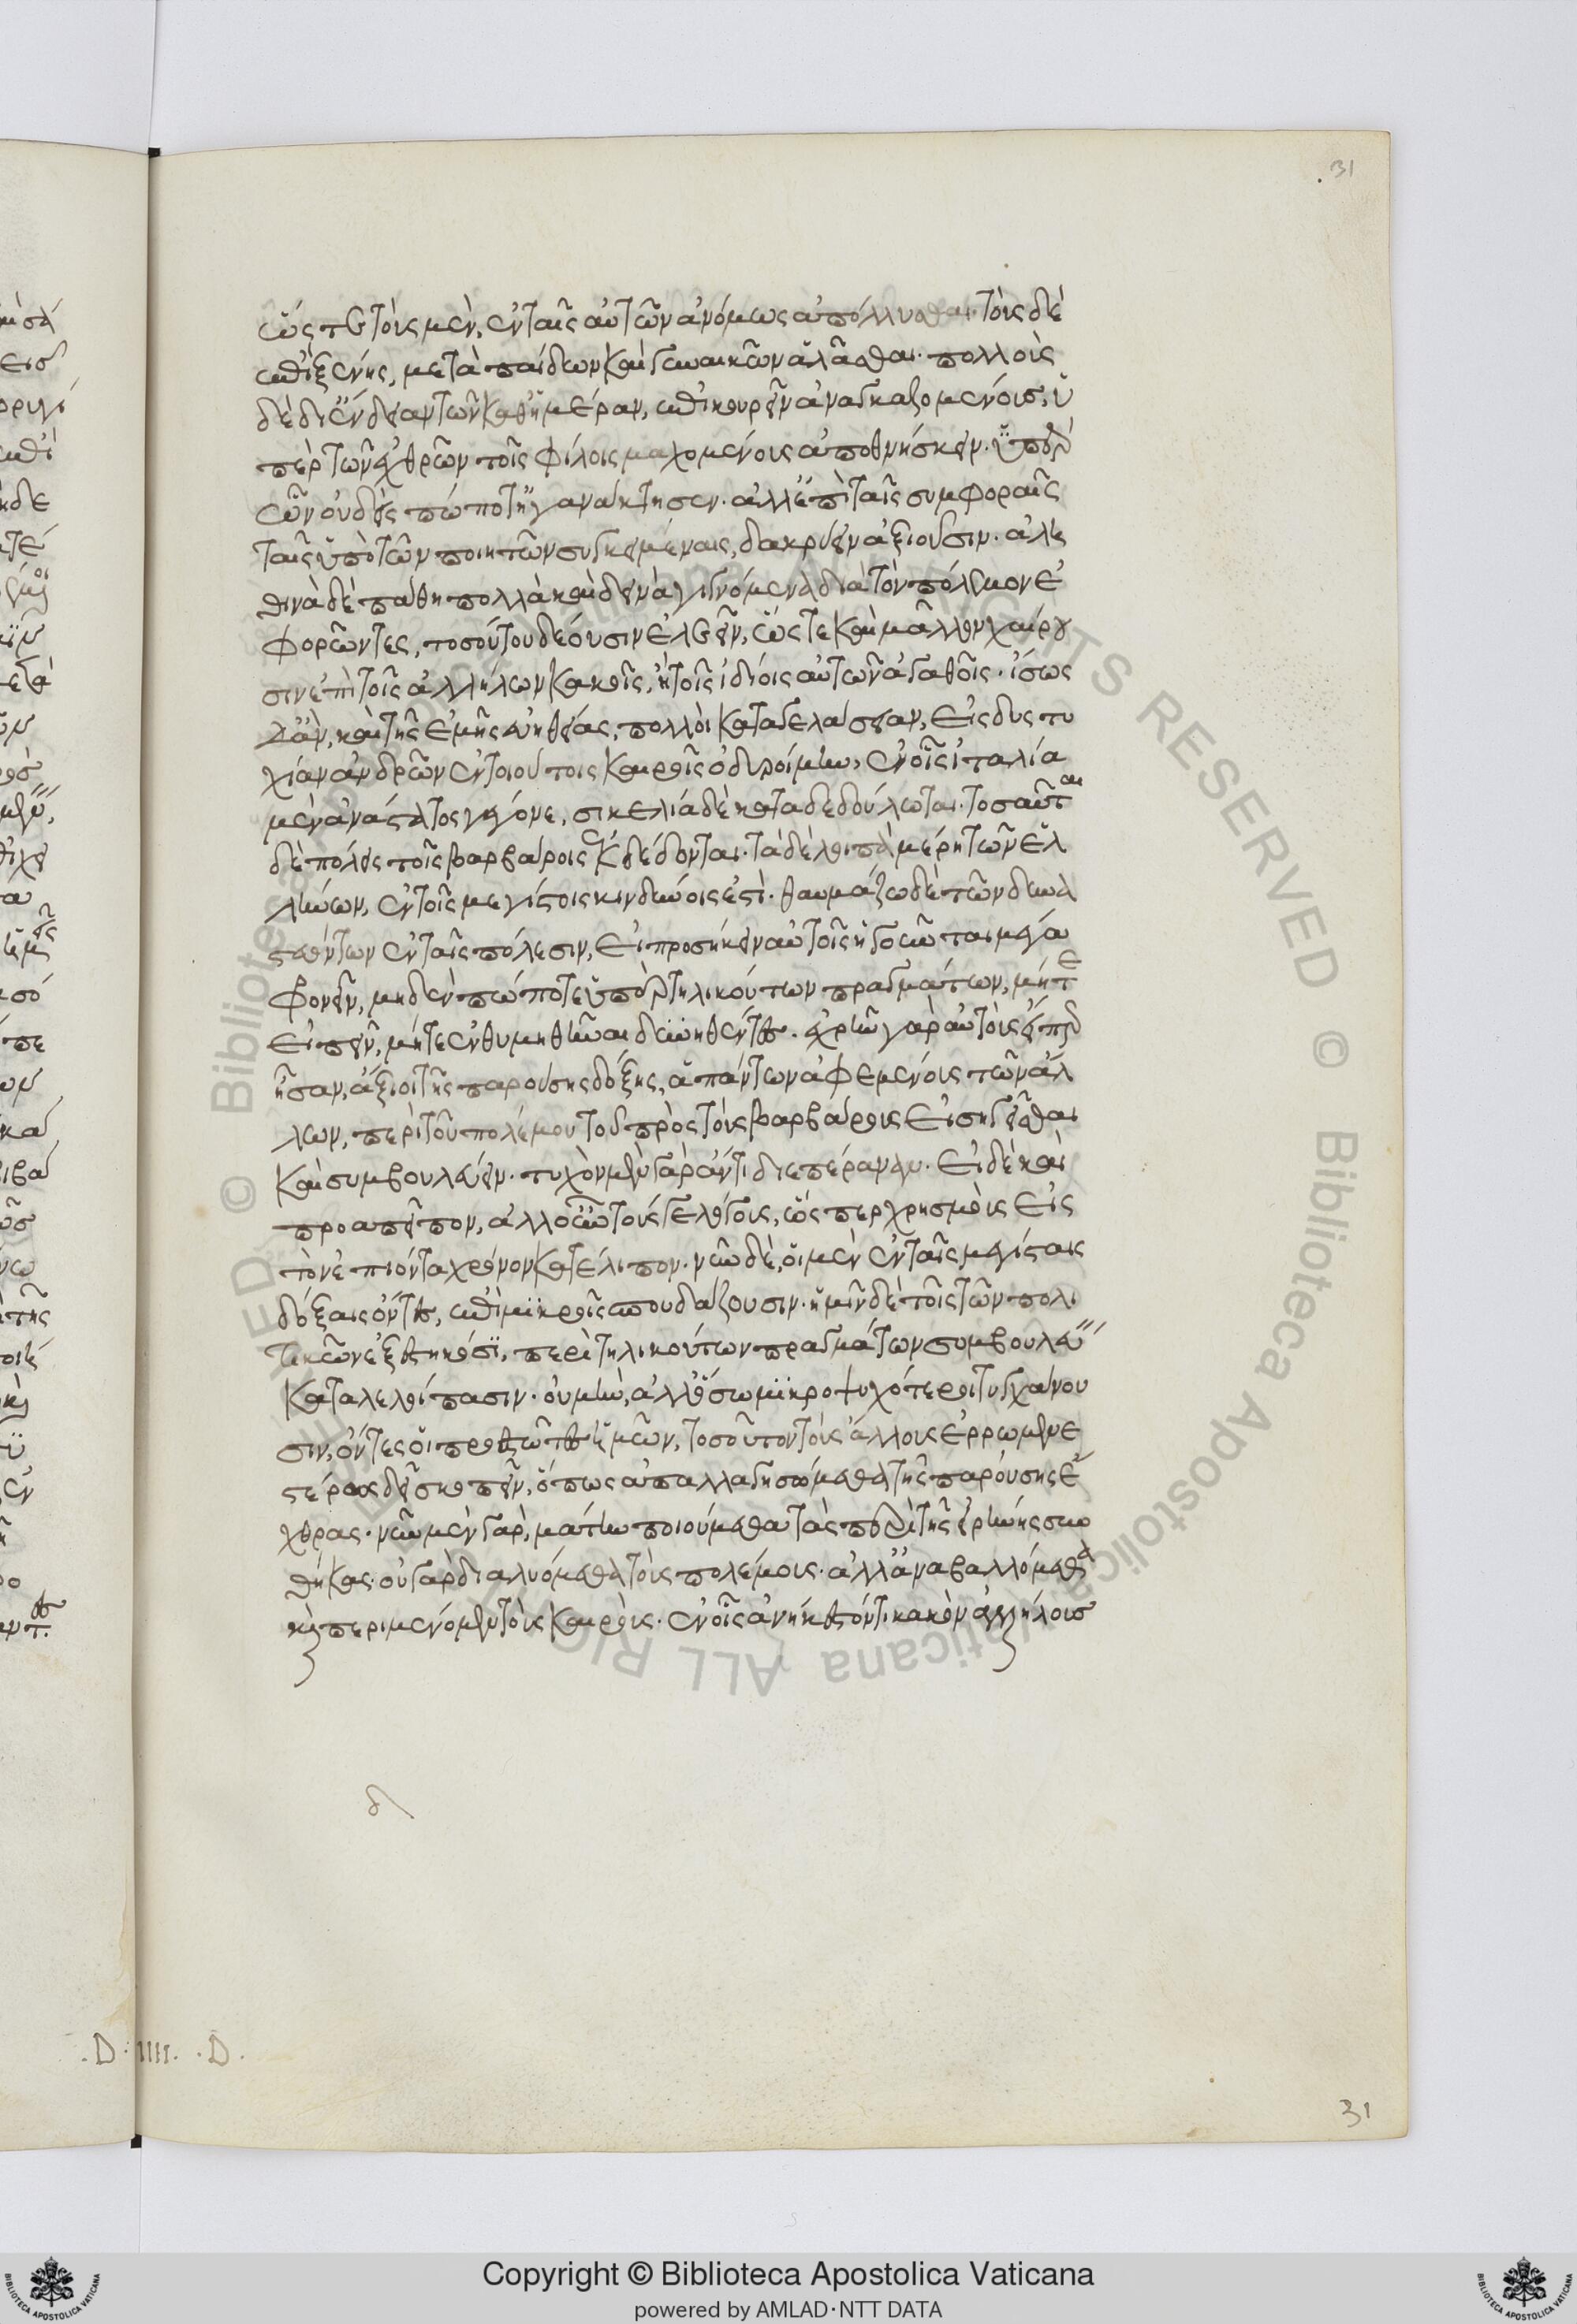 31
ὥστε τοὺς μὲν, ἐν ταῖς αὐτῶν ἀνόμως ἀπόλλυσθαι. τοὺς δὲ
ἐπὶ ξένης, μετὰ παίδων καὶ γυναικῶν ἀλᾶσθαι. πολλοὺς
δὲ δι' ἔνδειαν τῶν καθ' ἡμέραν, ἐπικουρεῖν ἀναγκαζομένους, ὑ
πὲρ τῶν ἐχθρῶν τοῖς φίλοις μαχομένους ἀποθνήσκειν. ὑπὲρ
ὧν οὐδεὶς πώποτ' ἠγανάκτησεν. ἀλλ' ἐπὶ ταῖς συμφοραῖς
ταῖς ὑπὸ τῶν ποιητῶν συγκειμέναις, δακρύειν ἀξιοῦσιν. ἀλη
θινὰ δὲ πάθη πολλὰ καὶ δεινὰ γιγνόμενα διὰ τὸν πόλεμον ἐ
φορῶντες, τοσούτου δέουσιν ἐλεεῖν, ὥστε καὶ μᾶλλον χαίρου
σιν ἐπὶ τοῖς ἀλλήλων κακοῖς, ἢ τοῖς ἰδίοις αὐτῶν ἀγαθοῖς. ἴσως
δ' ἂν, καὶ τῆς ἐμῆς εὐηθείας, πολλοὶ καταγελάσειαν, εἰ δυστυ
χίαν ἀνδρῶν ἐν τοιούτοις καιροῖς ὀδυροίμην, ἐν οἷς ἰταλία
μὲν ἀνάστατος γέγονε, σικελία δὲ καταδεδούλωται. τοσαῦται
δὲ πόλεις τοῖς βαρβάροις ἐκδέδονται. τὰ δὲ λοιπὰ μέρη τῶν ἑλ
λήνων, ἐν τοῖς μεγίστοις κινδύνοις ἐστί. θαυμάζω δὲ τῶν δυνα
στευόντων ἐν ταῖς πόλεσιν, εἰ προσήκειν αὐτοῖς ἡγοῦνται μέγα
φρονεῖν, μηδὲν πώποτε ὑπὲρ τηλικούτων πραγμάτων, μήτε
εἰπεῖν, μήτε ἐνθυμηθῆναι δυνηθέντες. ἐχρῆν γὰρ αὐτοὺς εἴπερ
ἦσαν, ἄξιοι τῆς παρούσης δόξης, ἁπάντων ἀφεμένους τῶν ἄλ
λων, περὶ τοῦ πολέμου τοῦ πρὸς τοὺς βαρβάρους εἰσηγεῖσθαι
καὶ συμβουλεύειν. τυχὸν μὲν γὰρ ἄν τι διεπέραναν. εἰ δὲ καὶ
προαπεῖπον, ἀλλ' οὖν τούς γε λόγους, ὥσπερ χρησμοὺς εἰς
τὸν ἐπιόντα χρόνον κατέλιπον. νῦν δὲ, οἱ μὲν ἐν ταῖς μεγίσταις
δόξαις ὄντες, ἐπὶ μικροῖς σπουδάζουσιν. ἡμῖν δὲ τοῖς τῶν πολι
τικῶν ἐξεστηκόσι, περὶ τηλικούτων πραγμάτων συμβουλεύειν
καταλελοίπασιν. οὐ μὴν, ἀλλ' ὅσῳ μικροψυχότεροι τυγχάνου
σιν, ὄντες οἱ προεστῶτες ἡμῶν, τοσοῦτον τοὺς ἄλλους ἐρρωμενε
στέρους δεῖ σκοπεῖν, ὅπως ἀπαλλαγησόμεθα τῆς παρούσης ἔ
χθρας. νῦν μὲν γὰρ, μάτην ποιούμεθα τὰς περὶ τῆς εἰρήνης συν
θήκας. οὐ γὰρ διαλυόμεθα τοὺς πολέμους. ἀλλ' ἀναβαλλόμεθα
καὶ περιμένομεν τοὺς καιροὺς. ἐν οἷς ἀνήκεστόν τι κακὸν ἀλλήλους
.D. IIII. .D.
31
Copyright © Biblioteca Apostolica Vaticana
powered by AMLAD·NTT DATA